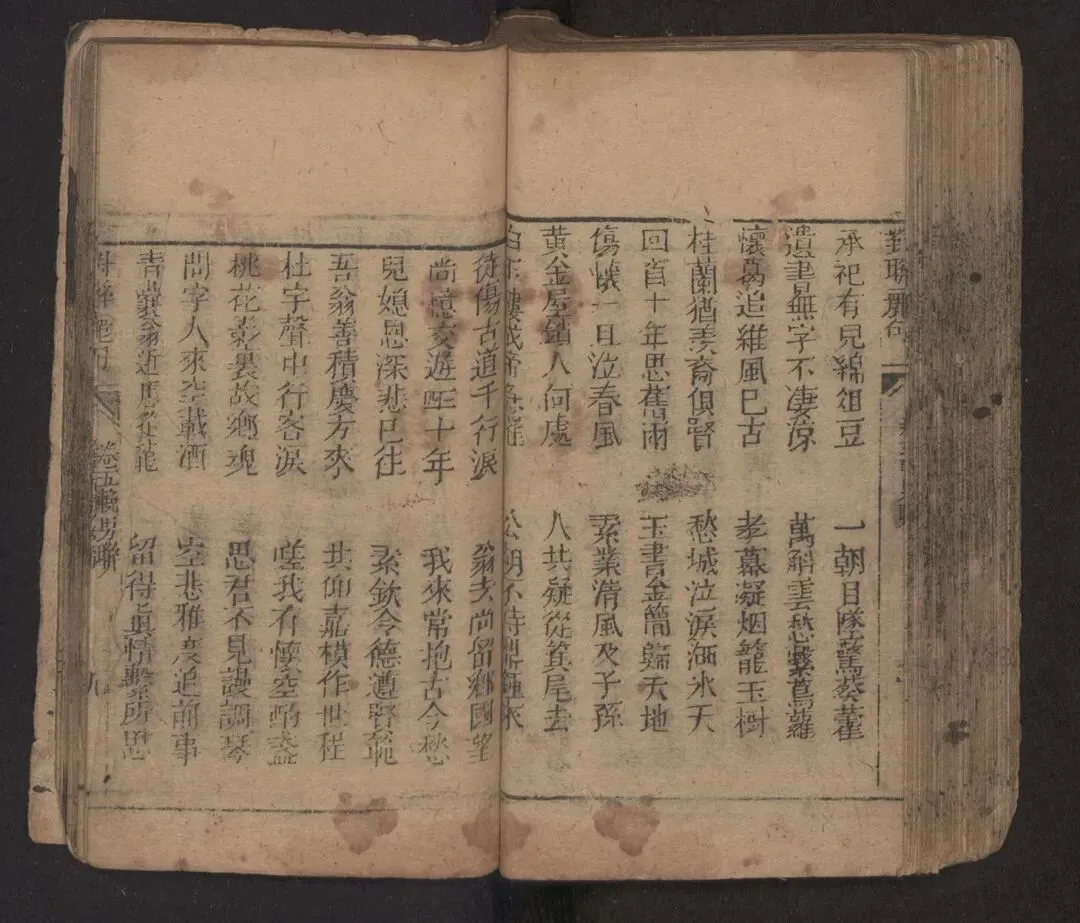 承祀有兒綿俎豆 一朝日墜驚葵藿
遺書無字不凄涼 萬斛雲愁縈蔦蘿
懷葛追維風已古 孝幕凝烟籠玉樹
桂蘭猶羡裔俱賢 愁城泣淚洒氷天
回首十年思舊雨 玉書金簡歸天地
傷懷一旦泣春風 素業清風及子孫
黃金屋鎖人何處 人共疑從箕尾去
白玉樓成帝 公明不待鼎鍾
徒傷古道千行淚 翁去尚留鄉國望
尚憶交遊四十年 我來常抱古今愁
兒媳思深悲已往 素欽令德遵賢範
吾翁善積慶方來 共仰嘉模作世程
杜宇聲中行客淚 嗟我有懷空酌盞
桃花影裏故鄉魂 思君不見謾調琴
問字人來空載酒 空悲雅度追前事
青囊翁逝 留得眞情繫所思
卷五輓男聯 九